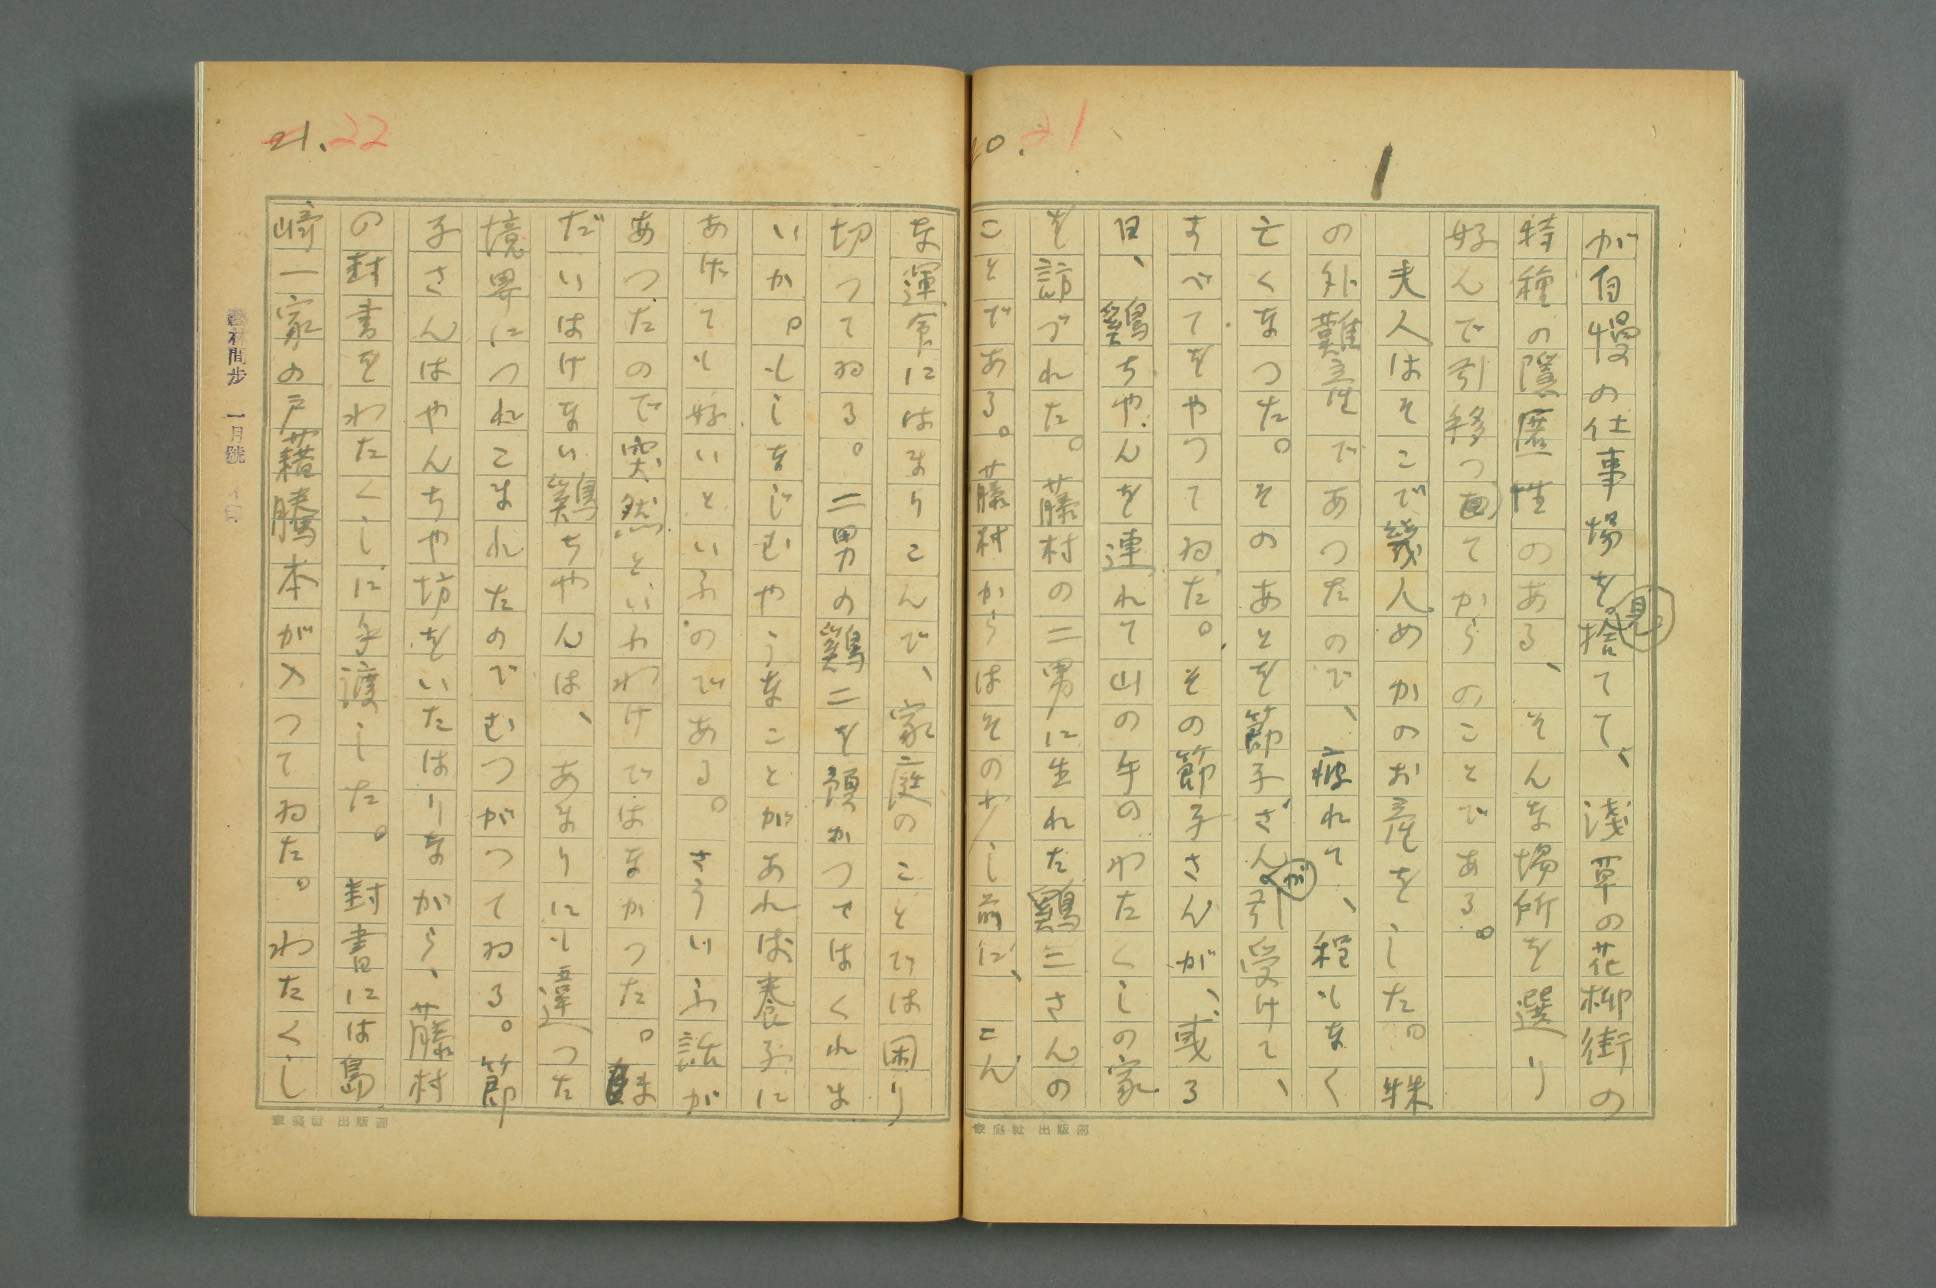 20. 21
1
が自慢の仕事場を見捨てて、淺草の花柳街の
特種の隱匿性のある、そんな場所を選り
好んで引移つてからのことである。
夫人はそこで幾人めかのお産をした。殊
の外難産であつたので、疲れて、程もなく
亡くなつた。そのあとを節子さんが引受けて、
すべてをやつてゐた。その節子さんが、或る
日、鷄ちやんを連れて山の手のわたくしの家
を訪づれた。藤村の二男に生れた鷄二さんの
ことである。藤村からはその少し前に、こん
21. 22
な運命にはまりこんで、家庭のことでは困り
切つてゐる。二男の鷄二を預かつてはくれま
いか。もしまじむやうなことがあれば養子に
あげても好いといふのである。さういふ話が
あつたので突然といふわけではなかつた。
だいはけない鷄ちやんは、あまりにも違つた
境界につれこまれたのでむつがつてゐる。節
子さんはやんちや坊をいたはりながら、藤村
の封書をわたくしに手渡した。封書には島
崎一家の戸藉謄本が入つてゐた。わたくし
藝林間歩 一月號
家庭社出版部
家庭社出版部